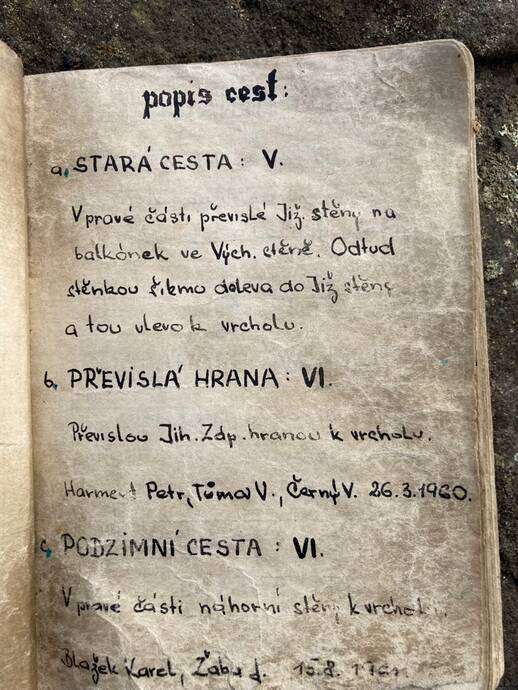 popis cest:
a, STARÁ CESTA: V.
V pravé části převislé Již. stěny na
balkónek ve Vých. stěně. Odtud
stěnkou šikmo doleva do Již stěny
a tou vlevo k vrcholu.
b, PŘEVISLÁ HRANA: VI.
Převislou Jih. Zdp. hranou k vrcholu.
Petr, Tůma V., Černý V. 26.3.1960.
c, PODZIMNÍ CESTA: VI.
V pravé části náhorní stěny k vrcholu.
Blažek Karel, J. 15.8.